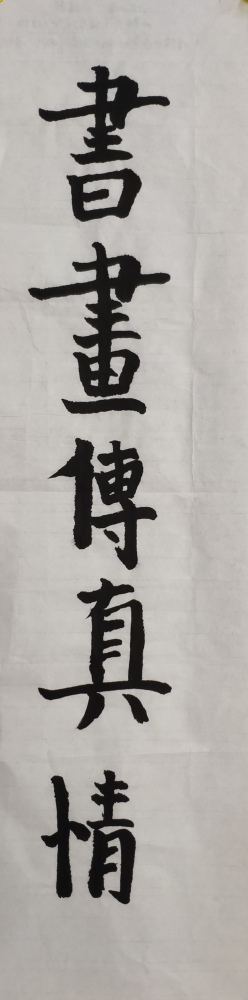 書畫傳真情